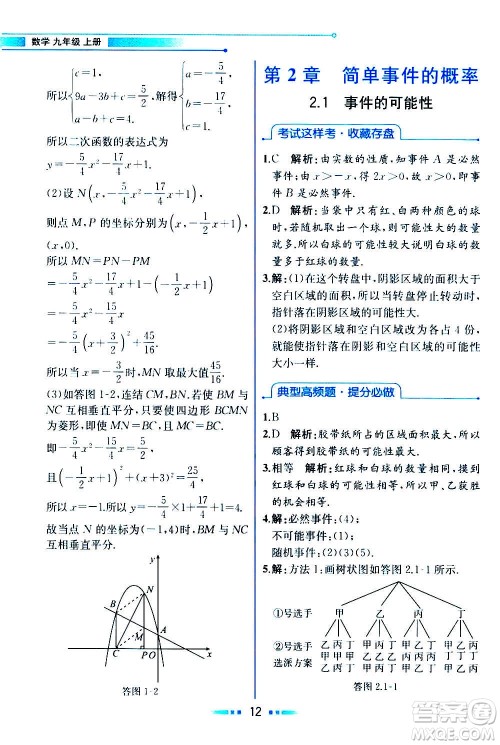 数学 九年级 上册
所以{c=1, 9a-3b+c=5/2, a-b+c=9/2, 解得{a=-5/4, b=-17/4, c=1.
所以二次函数的表达式为
y=-5/4x²-17/4x+1.
(2)设 N(x,-5/4x²-17/4x+1),
则点 M,P 的坐标分别为(x,-1/2x+1),
(x,0).
所以 MN=PN-PM
=-5/4x²-17/4x+1-(-1/2x+1)
=-5/4x²-15/4x
=-5/4(x+3/2)²+45/16.
所以当 x=-3/2时,MN 取最大值 45/16.
(3)如答图 1-2,连结 CM,BN.若 BM 与
NC 互相垂直平分,只要使四边形 BCMN
为菱形,即使 MN=BC,且 BC=MC.
即-5/4x²-15/4x=5/2,
且(-1/2x+1)²+(x+3)²=25/4,
所以 x=-1.
故当点 N 的坐标为(-1,4)时,BM 与 NC
互相垂直平分.
y
N
B
M
A
C
P
O
x
答图 1-2
第 2 章 简单事件的概率
2.1 事件的可能性
考试这样考·收藏存盘
1.C 解析:由实数的性质,知事件 A 是必然
事件.因为当 x≤0 时,x-|x|=2x,所以事
件 B 是必然事件.
2.D 解析:当象中只有红、白两种颜色的球
时,摸到红球的可能性较大说明袋中白球
的数量少于红球的数量.
3.解:(1)在这个转盘中,阴影区域的面积大于
空白区域的面积,所以当转盘停止转动时,
指针落在阴影区域的可能性大.
(2)将阴影区域和空白区域各占 4 份,能
使指针落在阴影区域和空白区域的可能性
大小一样.
典型高频题·提分必做
1.B
2.D 解析:胶带纸所占的区域面积最大,所以
顾客得到胶带纸的可能性最大.
3.相等 解析:红球和白球的数量相同,摸出
红球和白球的可能性相同,所以甲、乙获胜
的可能性相等.
4.解:必然事件:(4);
不可能事件:(1);
随机事件:(2)(3)(5).
5.解:方法 1:画树状图如答图 2.1-1 所示.
①号选手 甲 乙 丙 丁
②号选手 乙丙丁 甲丙丁 甲乙丁 甲乙丙
选派方案
答图 2.1-1
12